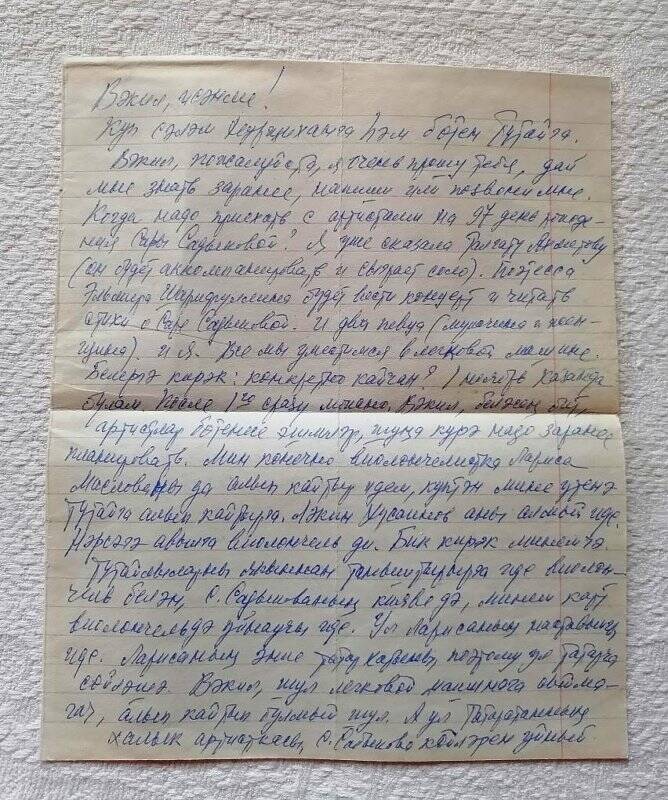 Вәкил, исәнме!
Күп сәлэм һәм бөтен Тутайга.
Вәкил, пожалуйста, я очень прошу тебя, дай
мне знать заранее, напиши или позвони мне.
Когда надо приехать с артистами на 97 день рожде-
ния Сары Садыковой? Я уже сказала Талгату Ахметову
(он будет аккомпанировать и сыграет соло). Поэтесса
Эльмира Шарифуллина будет вести концерт и читать
стихи о Саре Садыковой. И два певца (мужчина и жен-
щина). И я. Все мы уместимся в легковой машине.
Белергә кирәк: конкретно кайчан? 1 Казанда
булам. После 1го сразу можно. Вәкил, беләсең бит,
артистлар бөтенесе эшлиләр, шуңа күрә надо заранее
планировать. Мин конечно виолончелистка Лариса
Масловоны да алып кайтыр идем, күптән мине үзенә
Тутайга алып кайтырга. Ләкин Хусаинов аны алмый иде.
Нәрсәгә авылга виолончель ди. Бик кирәк минемчә.
Тутайлыларны таныштырырга иде виолон-
чель белән, С. Садыкованың кияве дә, минем карт
виолончельдә уйнаучы иде. Ул Ларисаның наставнигы
иде. Ларисаның әнисе татар хатыны, поэтому ул татарча
сөйләшә. Вәкил, шул легковой машинага сыйма-
гач, алып кайтып булмый шул. А ул Татарстанның
халык артисткасы, С. Садыкова көйләрен уйный.